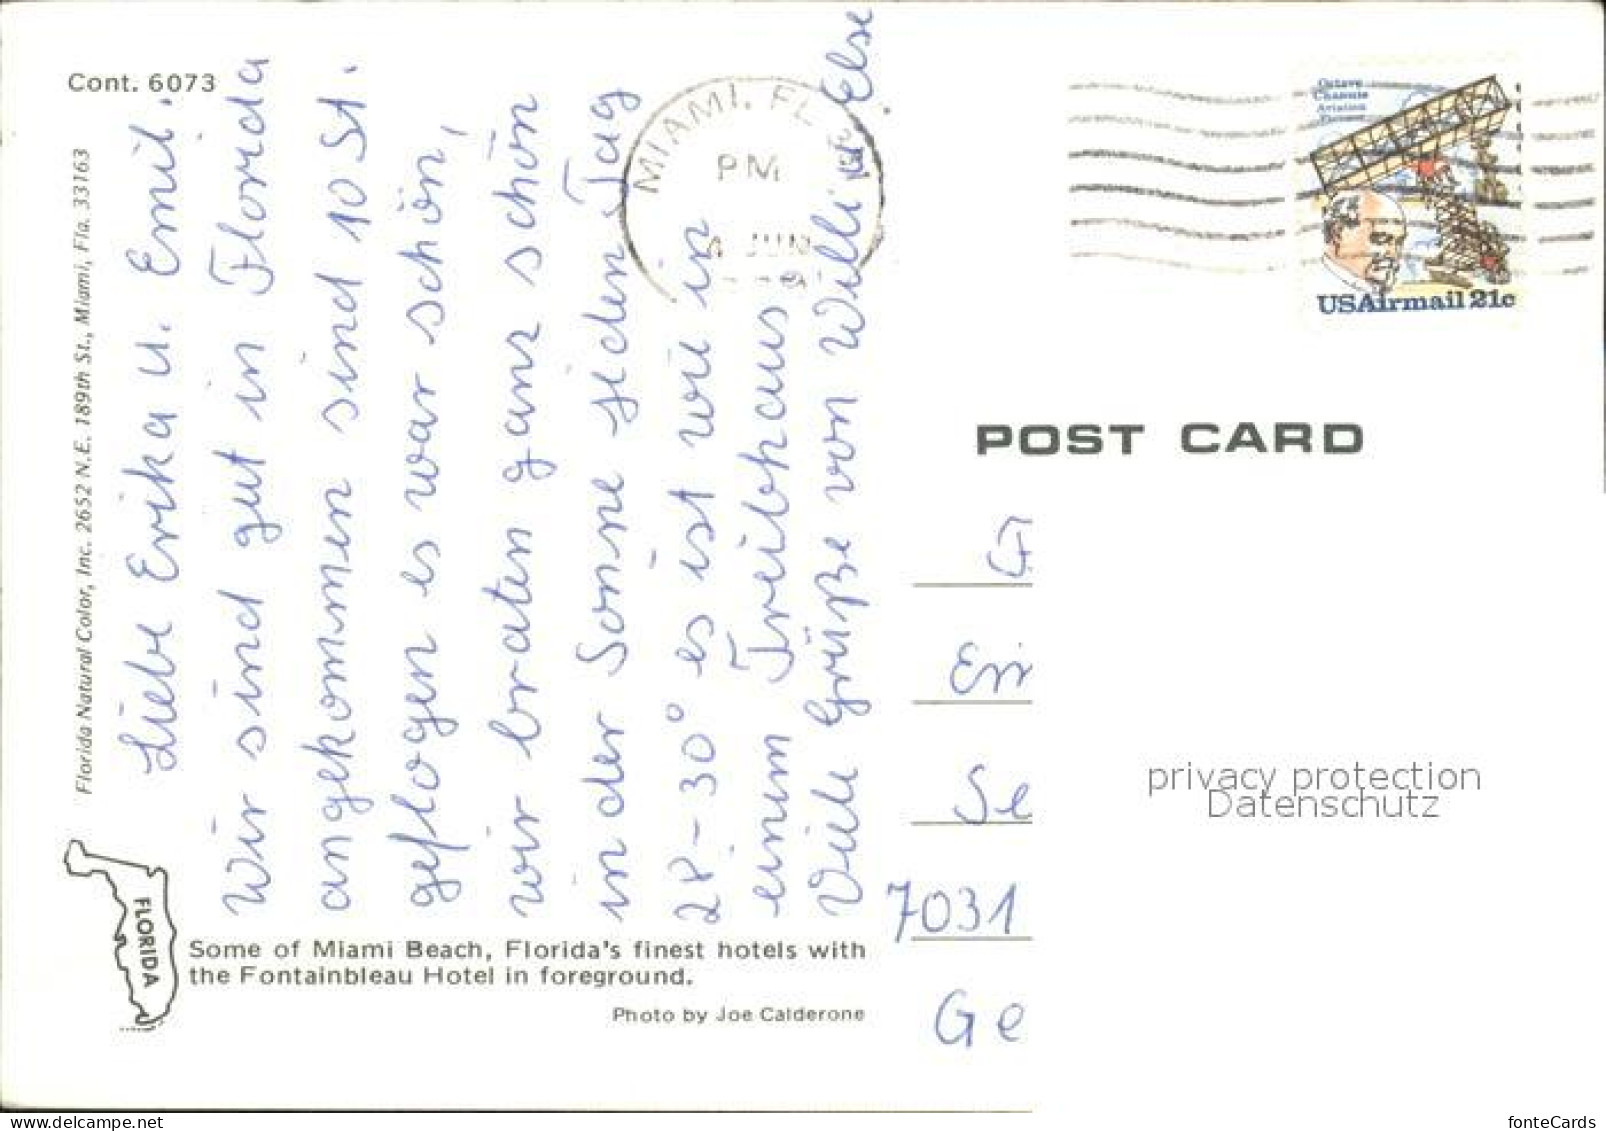 Cont. 6073
Florida Natural Color, Inc. 2652 N.E. 189th St., Miami, Fla. 33163
Liebe Erika u. Emil.
Wir sind gut in Florida
angekommen sind 10 St.
geflogen es war schön,
wir braten ganz schön
in der Sonne jeden Tag
28-30° es ist wie in
einem Treibhaus
Viele Grüße von Willi u. Else
FLORIDA
Some of Miami Beach, Florida's finest hotels with
the Fontainbleau Hotel in foreground.
Photo by Joe Calderone
MIAMI, FL
PM
JUN
Octave
Chanute
Aviation
Pioneer
USAirmail 21c
POST CARD
Se
7031
Ge
privacy protection
Datenschutz
fonteCards